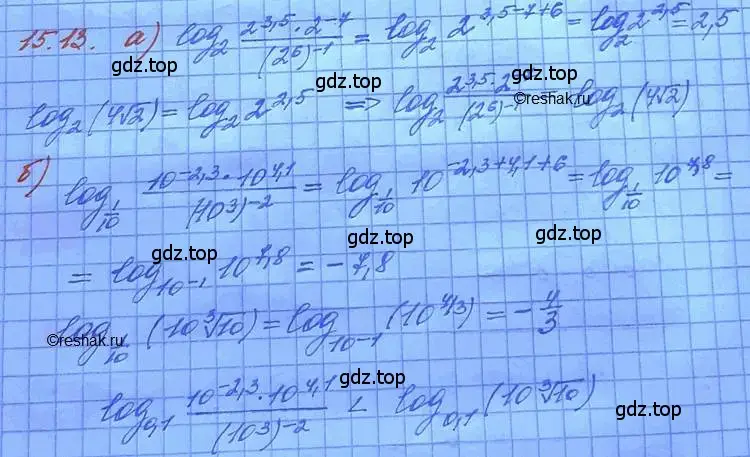 15.13. а) log₂ (2^3,5 · 2^-7)/((2^6)^-1) = log₂ 2^(3,5-7+6) = log₂ 2^2,5 = 2,5
gdz.top gdz.top gdz.top
log₂(4√2) = log₂ 2^2,5 => log₂ (2^3,5 · 2^-7)/((2^6)^-1) = log₂(4√2)
©reshak.ru
б) log_(1/10) (10^-2,3 · 10^4,1)/((10^3)^-2) = log_(1/10) 10^(-2,3+4,1+6) = log_(1/10) 10^7,8 =
gdz.top gdz.top gdz.top
= log_(10^-1) 10^7,8 = -7,8
log_(1/10) (10∛10) = log_(10^-1) (10^4/3) = -4/3
©reshak.ru gdz.top
log_0,1 (10^-2,3 · 10^4,1)/((10^3)^-2) < log_0,1 (10∛10)
gdz.top gdz.top